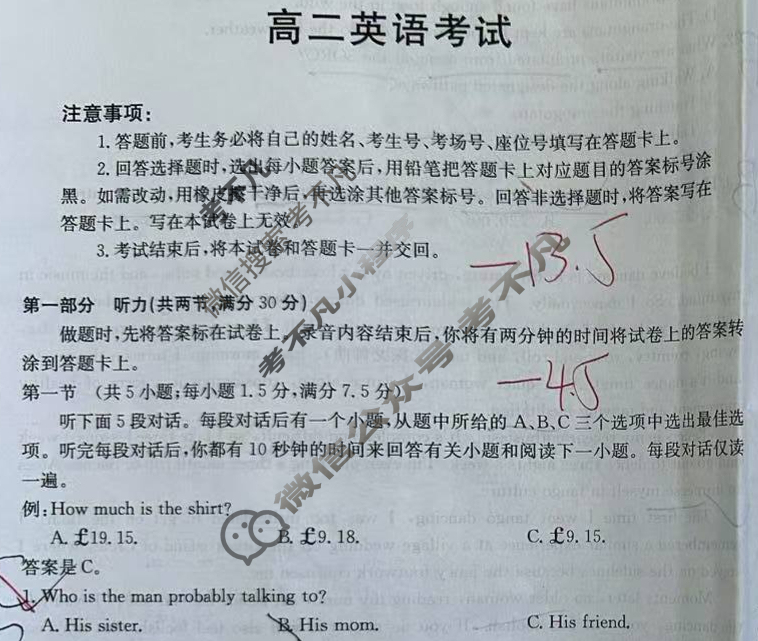 高二英语考试
注意事项:
1.答题前,考生务必将自己的姓名、考生号、考场号、座位号填写在答题卡上。
2.回答选择题时,选出每小题答案后,用铅笔把答题卡上对应题目的答案标号涂
黑。如需改动,用橡皮擦干净后,再选涂其他答案标号。回答非选择题时,将答案写在
答题卡上。写在本试卷上无效。
3.考试结束后,将本试卷和答题卡一并交回。
-13.5
第一部分 听力(共两节,满分30分)
做题时,先将答案标在试卷上。录音内容结束后,你将有两分钟的时间将试卷上的答案转
涂到答题卡上。
-4.5
第一节 (共5小题;每小题1.5分,满分7.5分)
听下面5段对话。每段对话后有一个小题,从题中所给的A、B、C三个选项中选出最佳选
项。听完每段对话后,你都有10秒钟的时间来回答有关小题和阅读下一小题。每段对话仅读
一遍。
例:How much is the shirt?
A. £19.15. B. £9.18. C. £9.15.
答案是C。
1. Who is the man probably talking to?
A. His sister. B. His mom. C. His friend.
考不凡
微信搜索考不凡
考不凡小程序
微信公众号考不凡